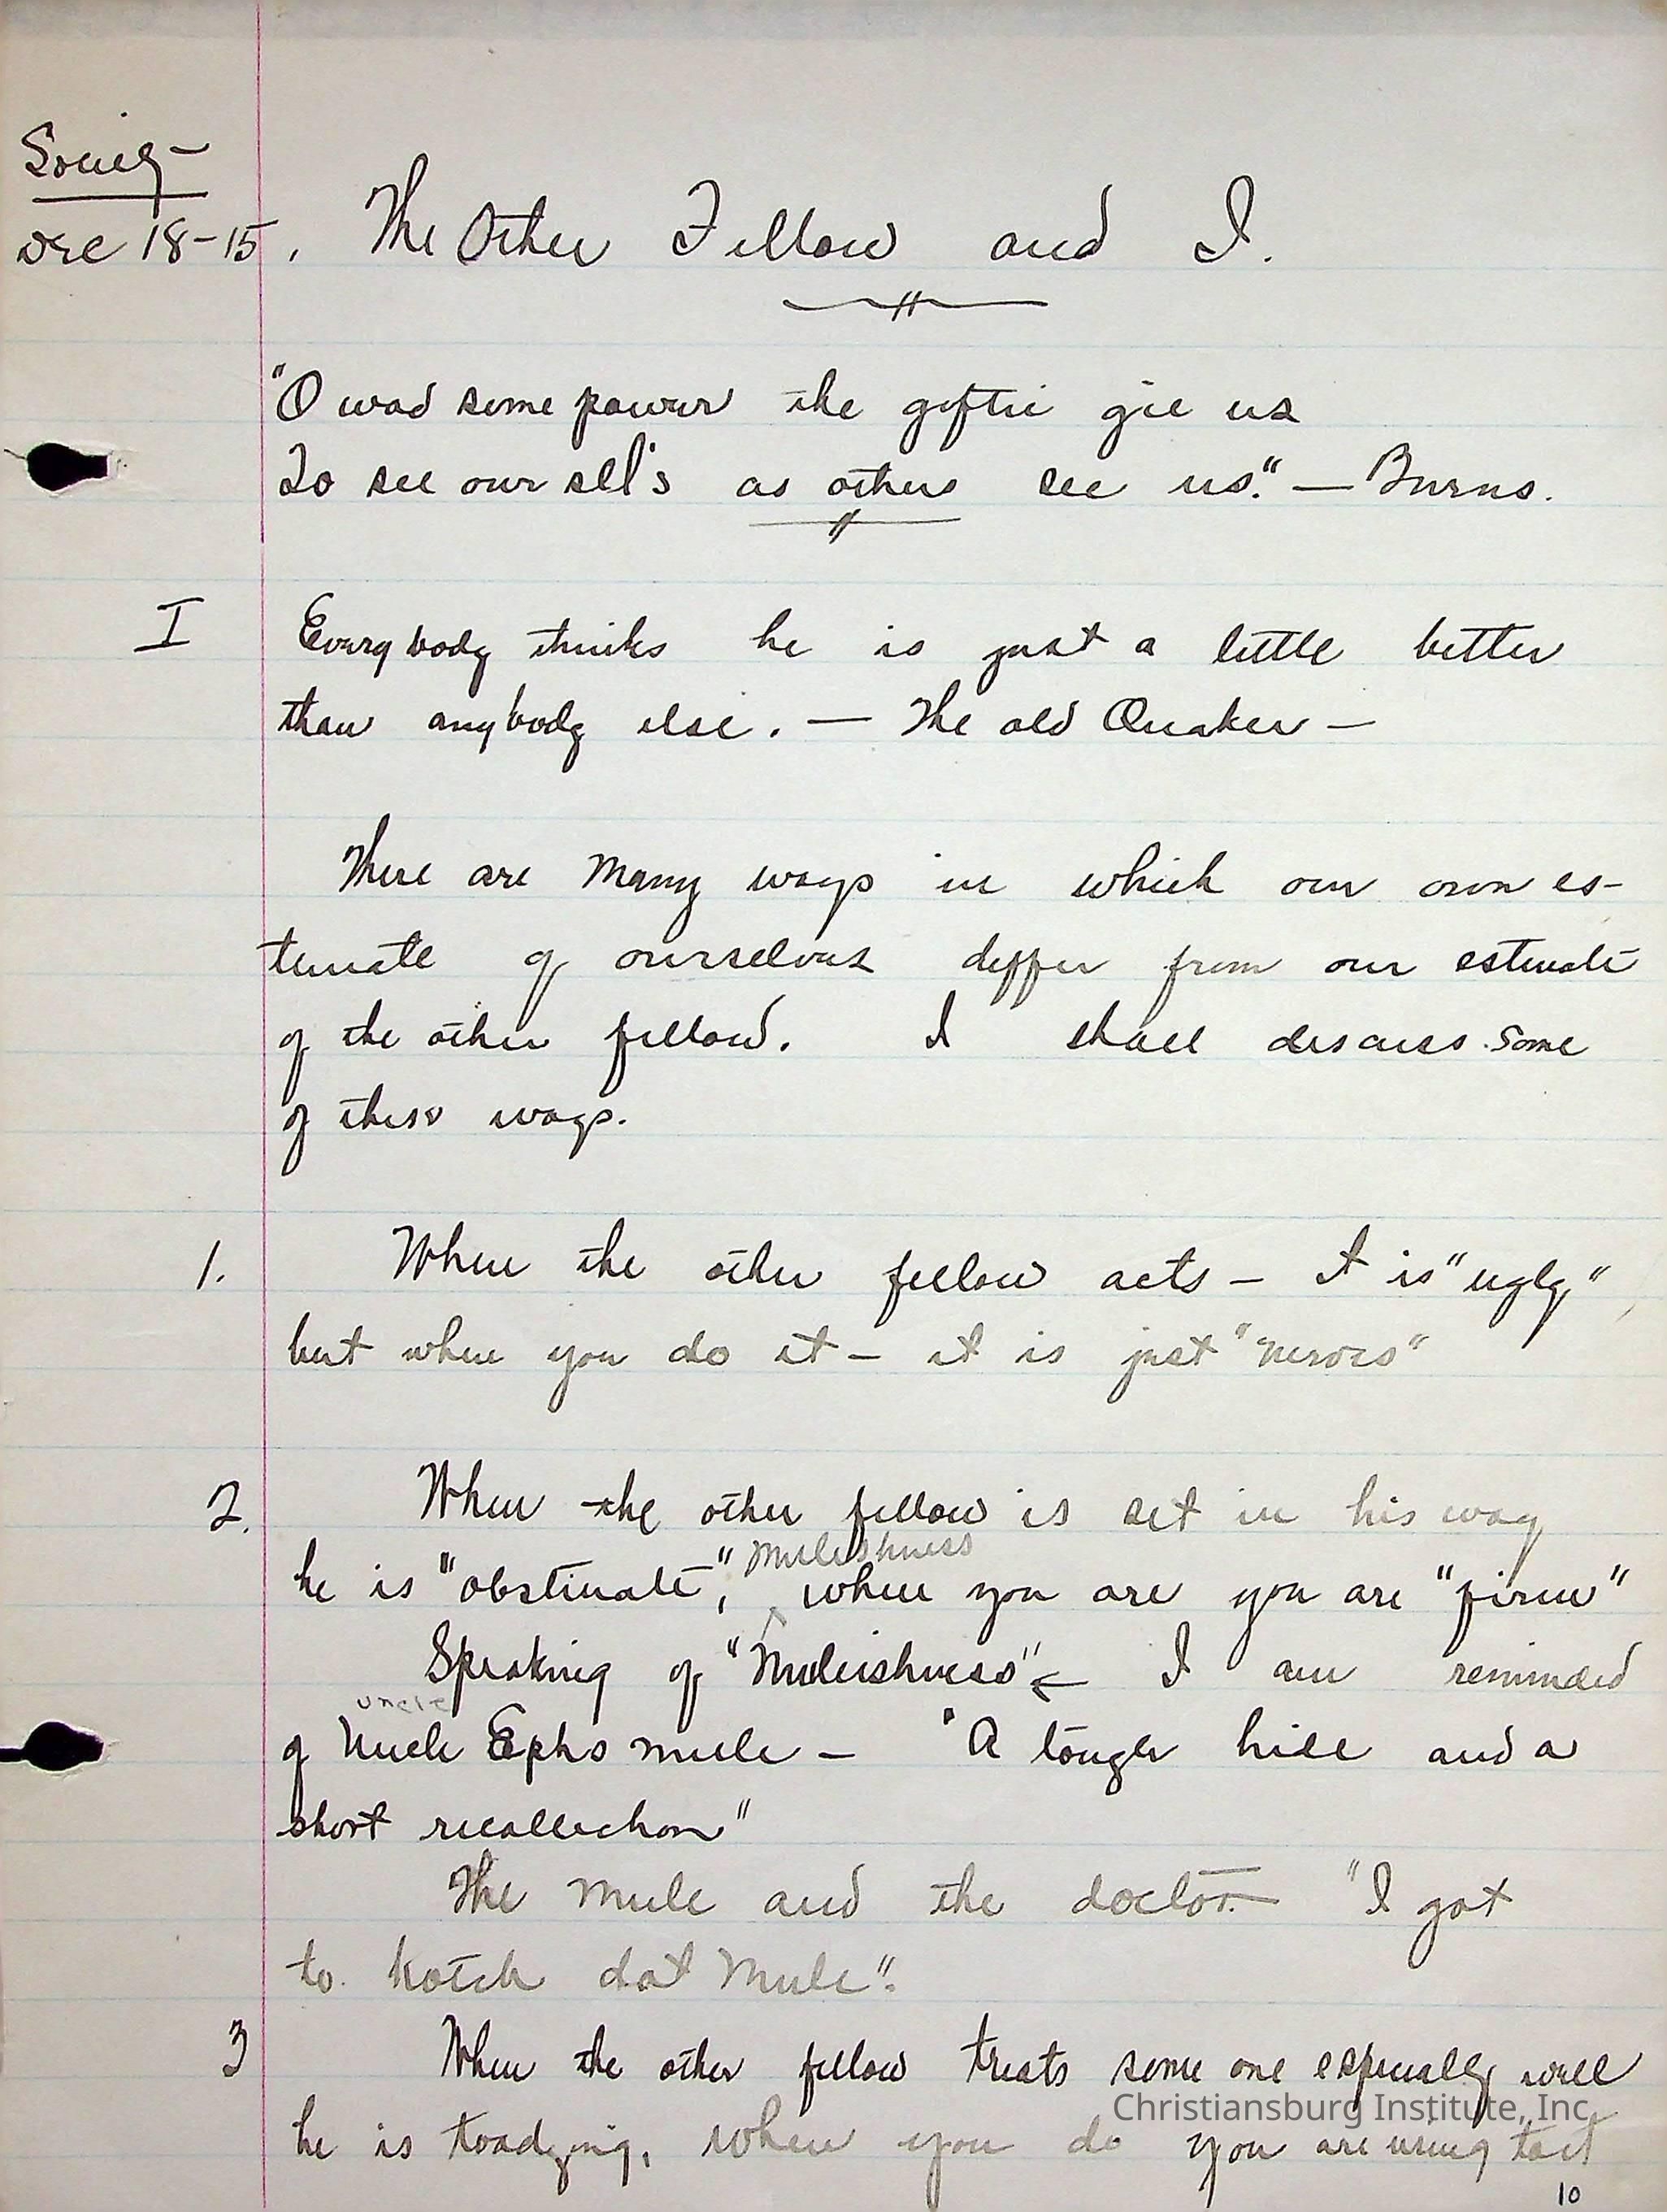 Dec 18-15. The Other Fellow and I.
"O wad some power the giftie gie us
To see oursel's as others see us." — Burns.
I Everybody thinks he is just a little better
than anybody else. — The old Quaker —
There are many ways in which our own es-
timate of ourselves differ from our estimate
of the other fellow. I shall discuss some
of these ways.
1. When the other fellow acts — it is "ugly"
but when you do it — it is just "nerves"
2. When the other fellow is set in his way
mulishness
he is "obstinate", when you are you are "firm"
Speaking of "Muleishness" I am reminded
uncle
of Uncle Ephs mule — "A tough hide and a
short recollection"
The mule and the doctor — "I got
to kotch dat mule".
3 When the other fellow treats some one especially well
he is toadying, when you do you are using tact
Christiansburg Institute, Inc.
10